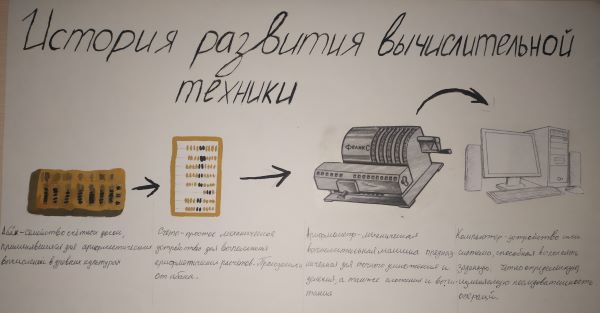 История развития вычислительной
техники
Феликс
Абак-семейство счётных досок,
применявшихся для арифметических
вычислений в древних культурах
Счёты-простое механическое
устройство для выполнения
арифметических расчётов. Произошли
от абака.
Арифмометр-механическая
вычислительная машина предназ-
наченная для точного умножения и
деления, а также сложения и вычи-
тания
Компьютер-устройство или
система, способная выполнять
заданную, чётко определённую,
изменяемую последовательность
операций.